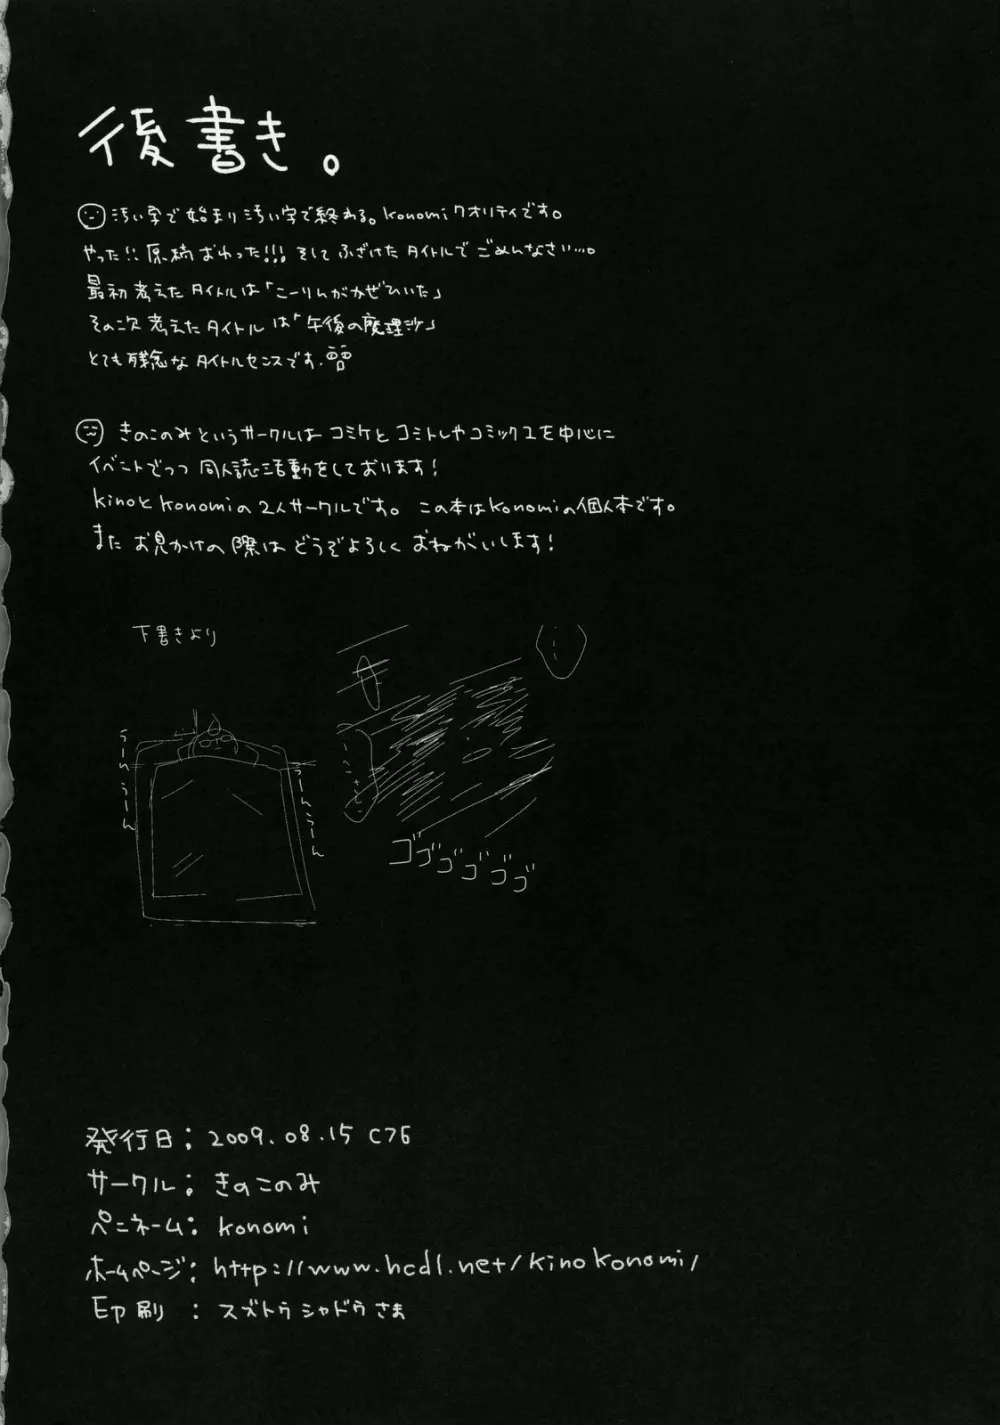 後書き。
汚い字で始まり汚い字で終わる。konomiクオリティです。
やった!!原稿おわった!!!そしてふざけたタイトルでごめんなさい…。
最初考えたタイトルは「こーりんがかぜひいた」
その次考えたタイトルは「午後の魔理沙」
とても残念なタイトルセンスです.
きのこのみというサークルはコミケとコミトレやコミック1を中心に
イベントでつつ同人誌活動をしております!
kinoとkonomiの2人サークルです。この本はkonomiの個人本です。
またお見かけの際はどうぞよろしくおねがいします!
下書きより
うーんうーん
うーんうーん
ゴゴゴゴゴゴ
発行日:2009.08.15 C76
サークル:きのこのみ
ペンネーム:konomi
ホームページ:http://www.hcdl.net/kinokonomi/
印刷:スズトウシャドウさま